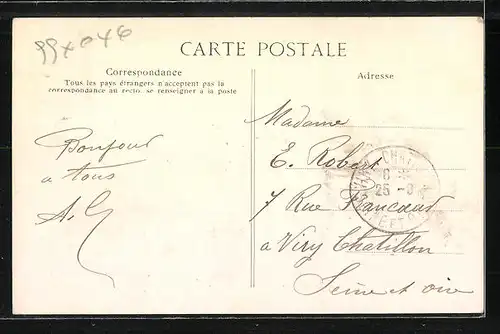 99x046
CARTE POSTALE
Correspondance
Tous les pays étrangers n'acceptent pas la
correspondance au recto, se renseigner à la poste
Adresse
Bonjour
a tous
A. G
Madame
E. Robert
7 Rue
a Viry Chatillon
Seine et oise
CHAT
25
ET